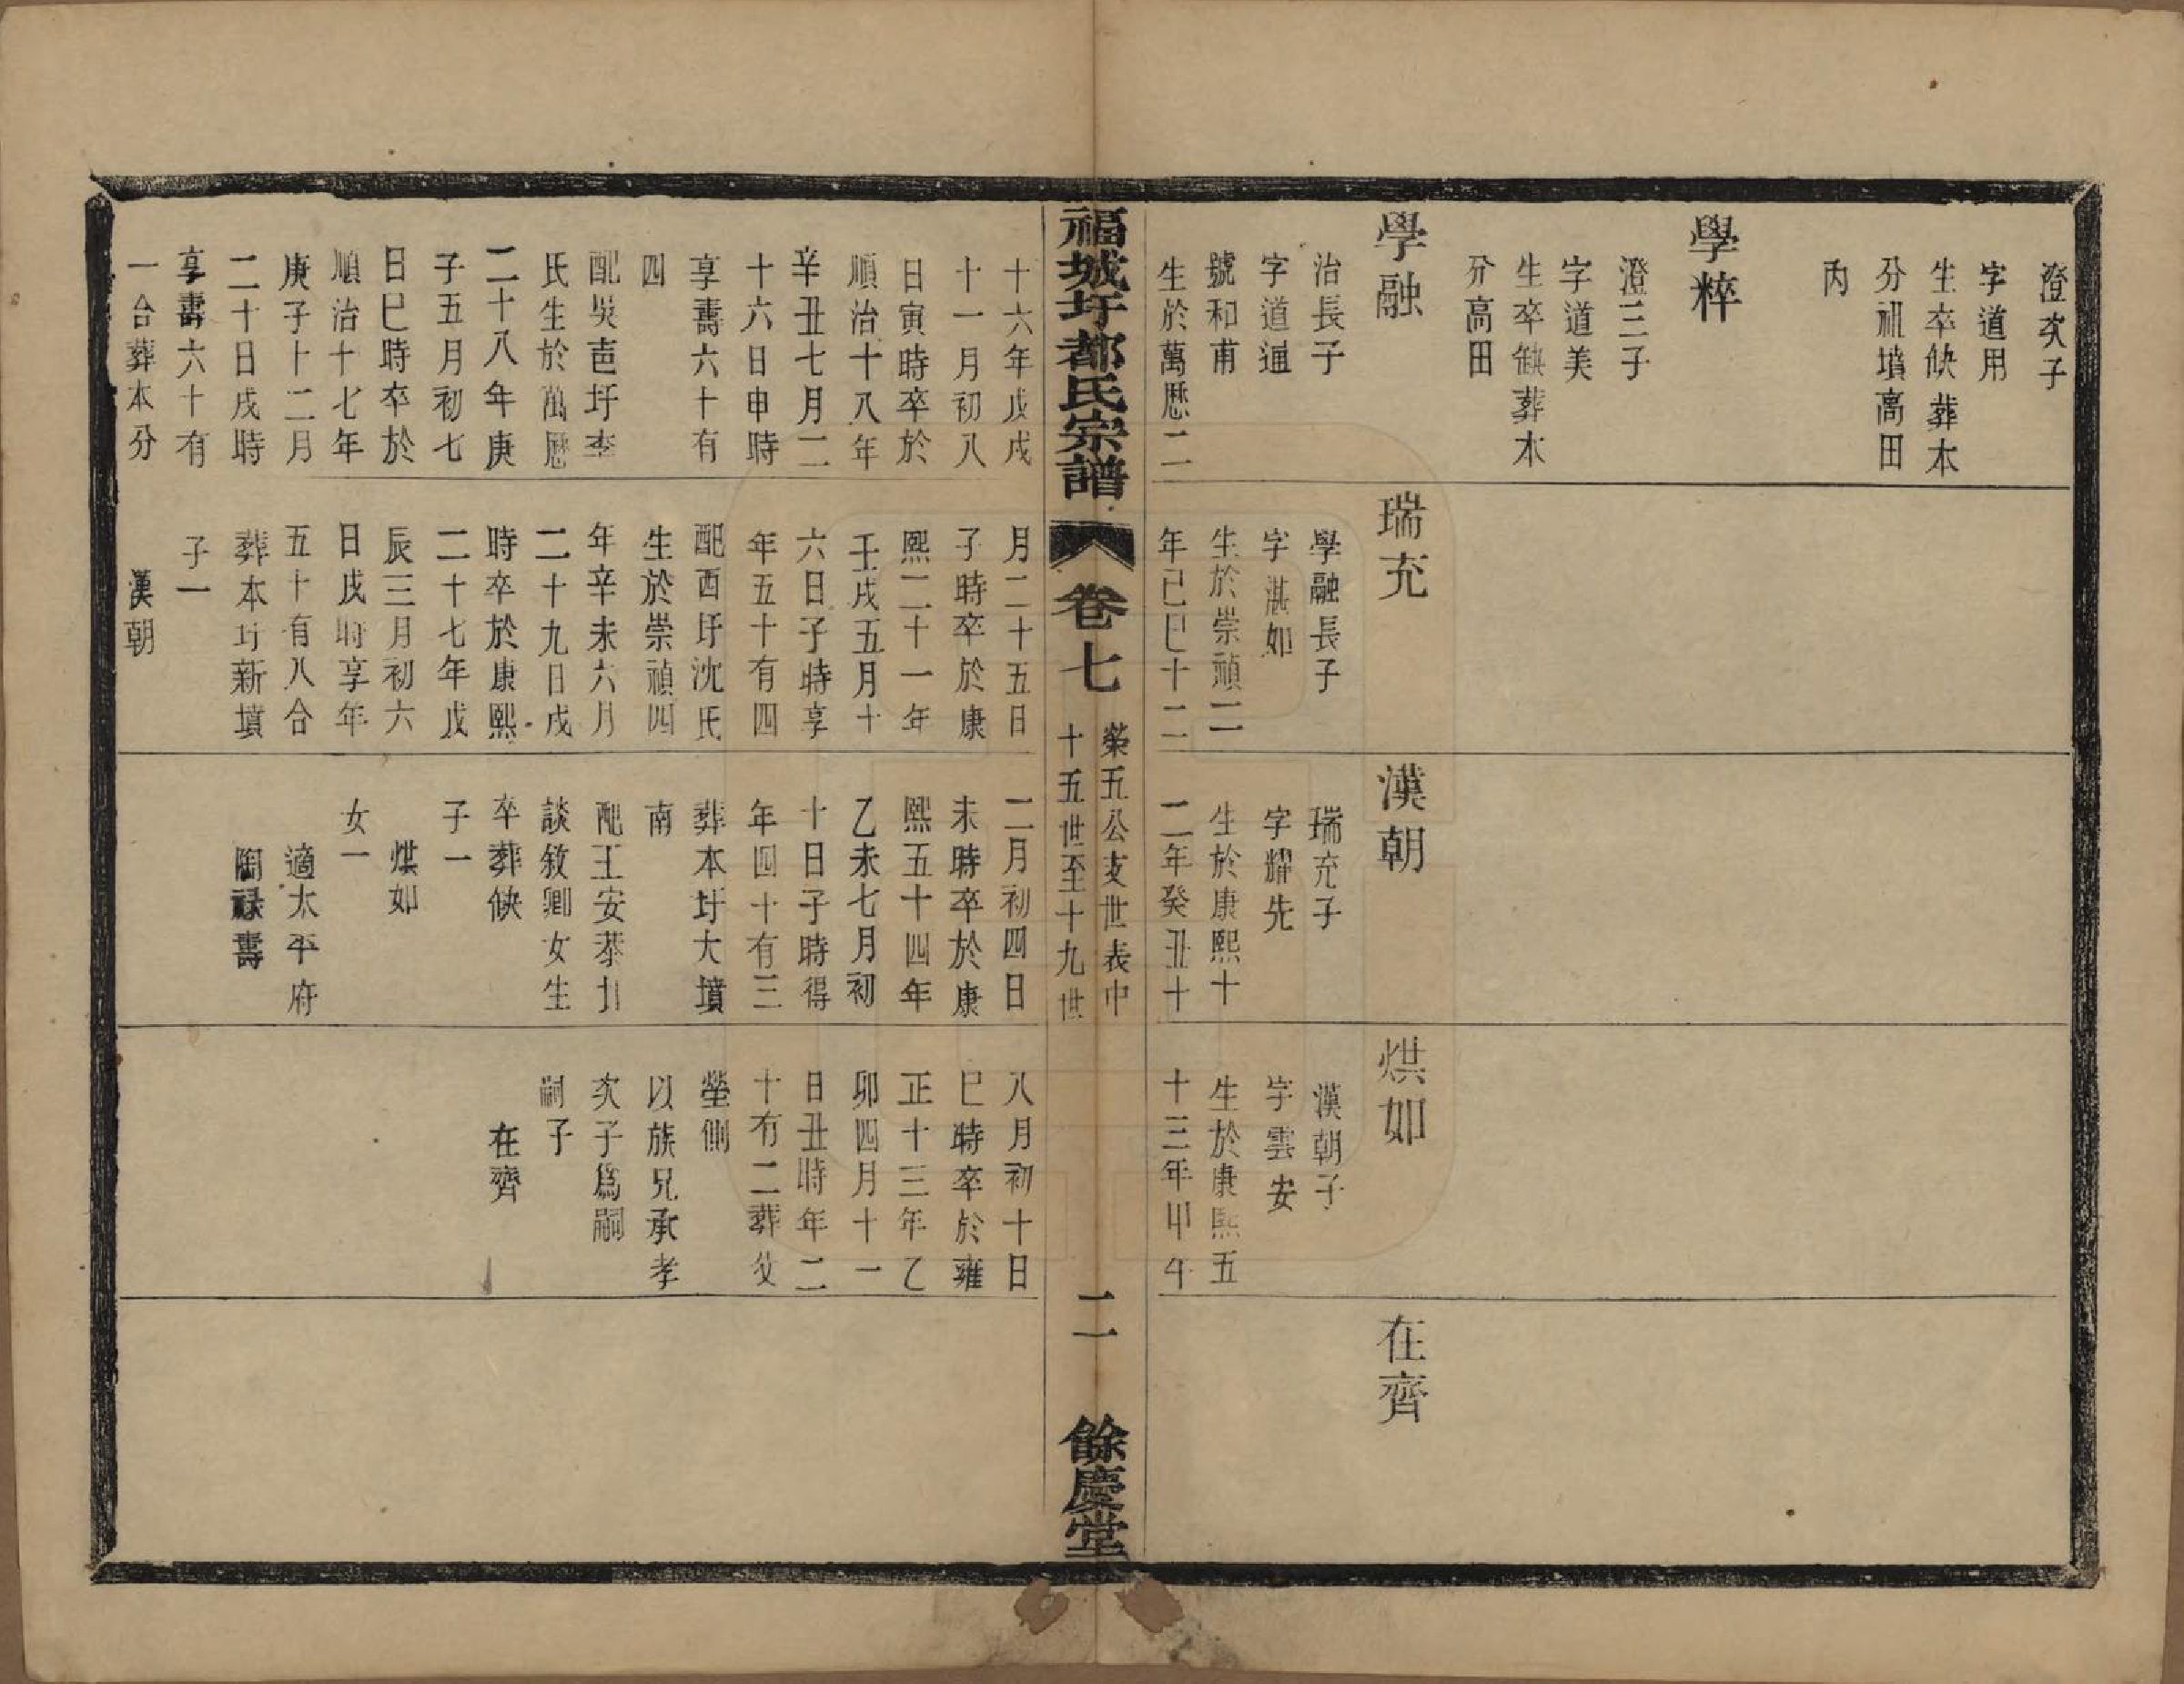 澄次子
字道用
生卒缺葬本
分祖墳高田
內
學粹
澄三子
字道美
生卒缺葬本
分高田
學融
治長子
字道通
號和甫
生於萬歷二
瑞充
學融長子
字湛如
生於崇禎二
年己巳十二
漢朝
瑞充子
字耀先
生於康熙十
二年癸丑十
烘如
漢朝子
字雲安
生於康熙五
十三年甲午
在齊
福城圩都氏宗譜
卷七
榮五公支世表中
十五世至十九世
二
餘慶堂
十六年戊戌
十一月初八
日寅時卒於
順治十八年
辛丑七月二
十六日申時
享壽六十有
四
配吳芭圩李
氏生於萬歷
二十八年庚
子五月初七
日巳時卒於
順治十七年
庚子十二月
二十日戌時
享壽六十有
一合葬本分
月二十五日
子時卒於康
熙二十一年
壬戌五月十
六日子時享
年五十有四
配西圩沈氏
生於崇禎四
年辛未六月
二十九日戌
時卒於康熙
二十七年戊
辰三月初六
日戌時享年
五十有八合
葬本圩新墳
子一
漢朝
二月初四日
未時卒於康
熙五十四年
乙未七月初
十日子時得
年四十有三
葬本圩大墳
南
配王安恭圩
談敘卿女生
卒葬缺
子一
烘如
女一
適太平府
陶祿壽
八月初十日
巳時卒於雍
正十三年乙
卯四月十一
日丑時年二
十有二葬父
塋側
以族兄承孝
次子爲嗣
嗣子
在齊